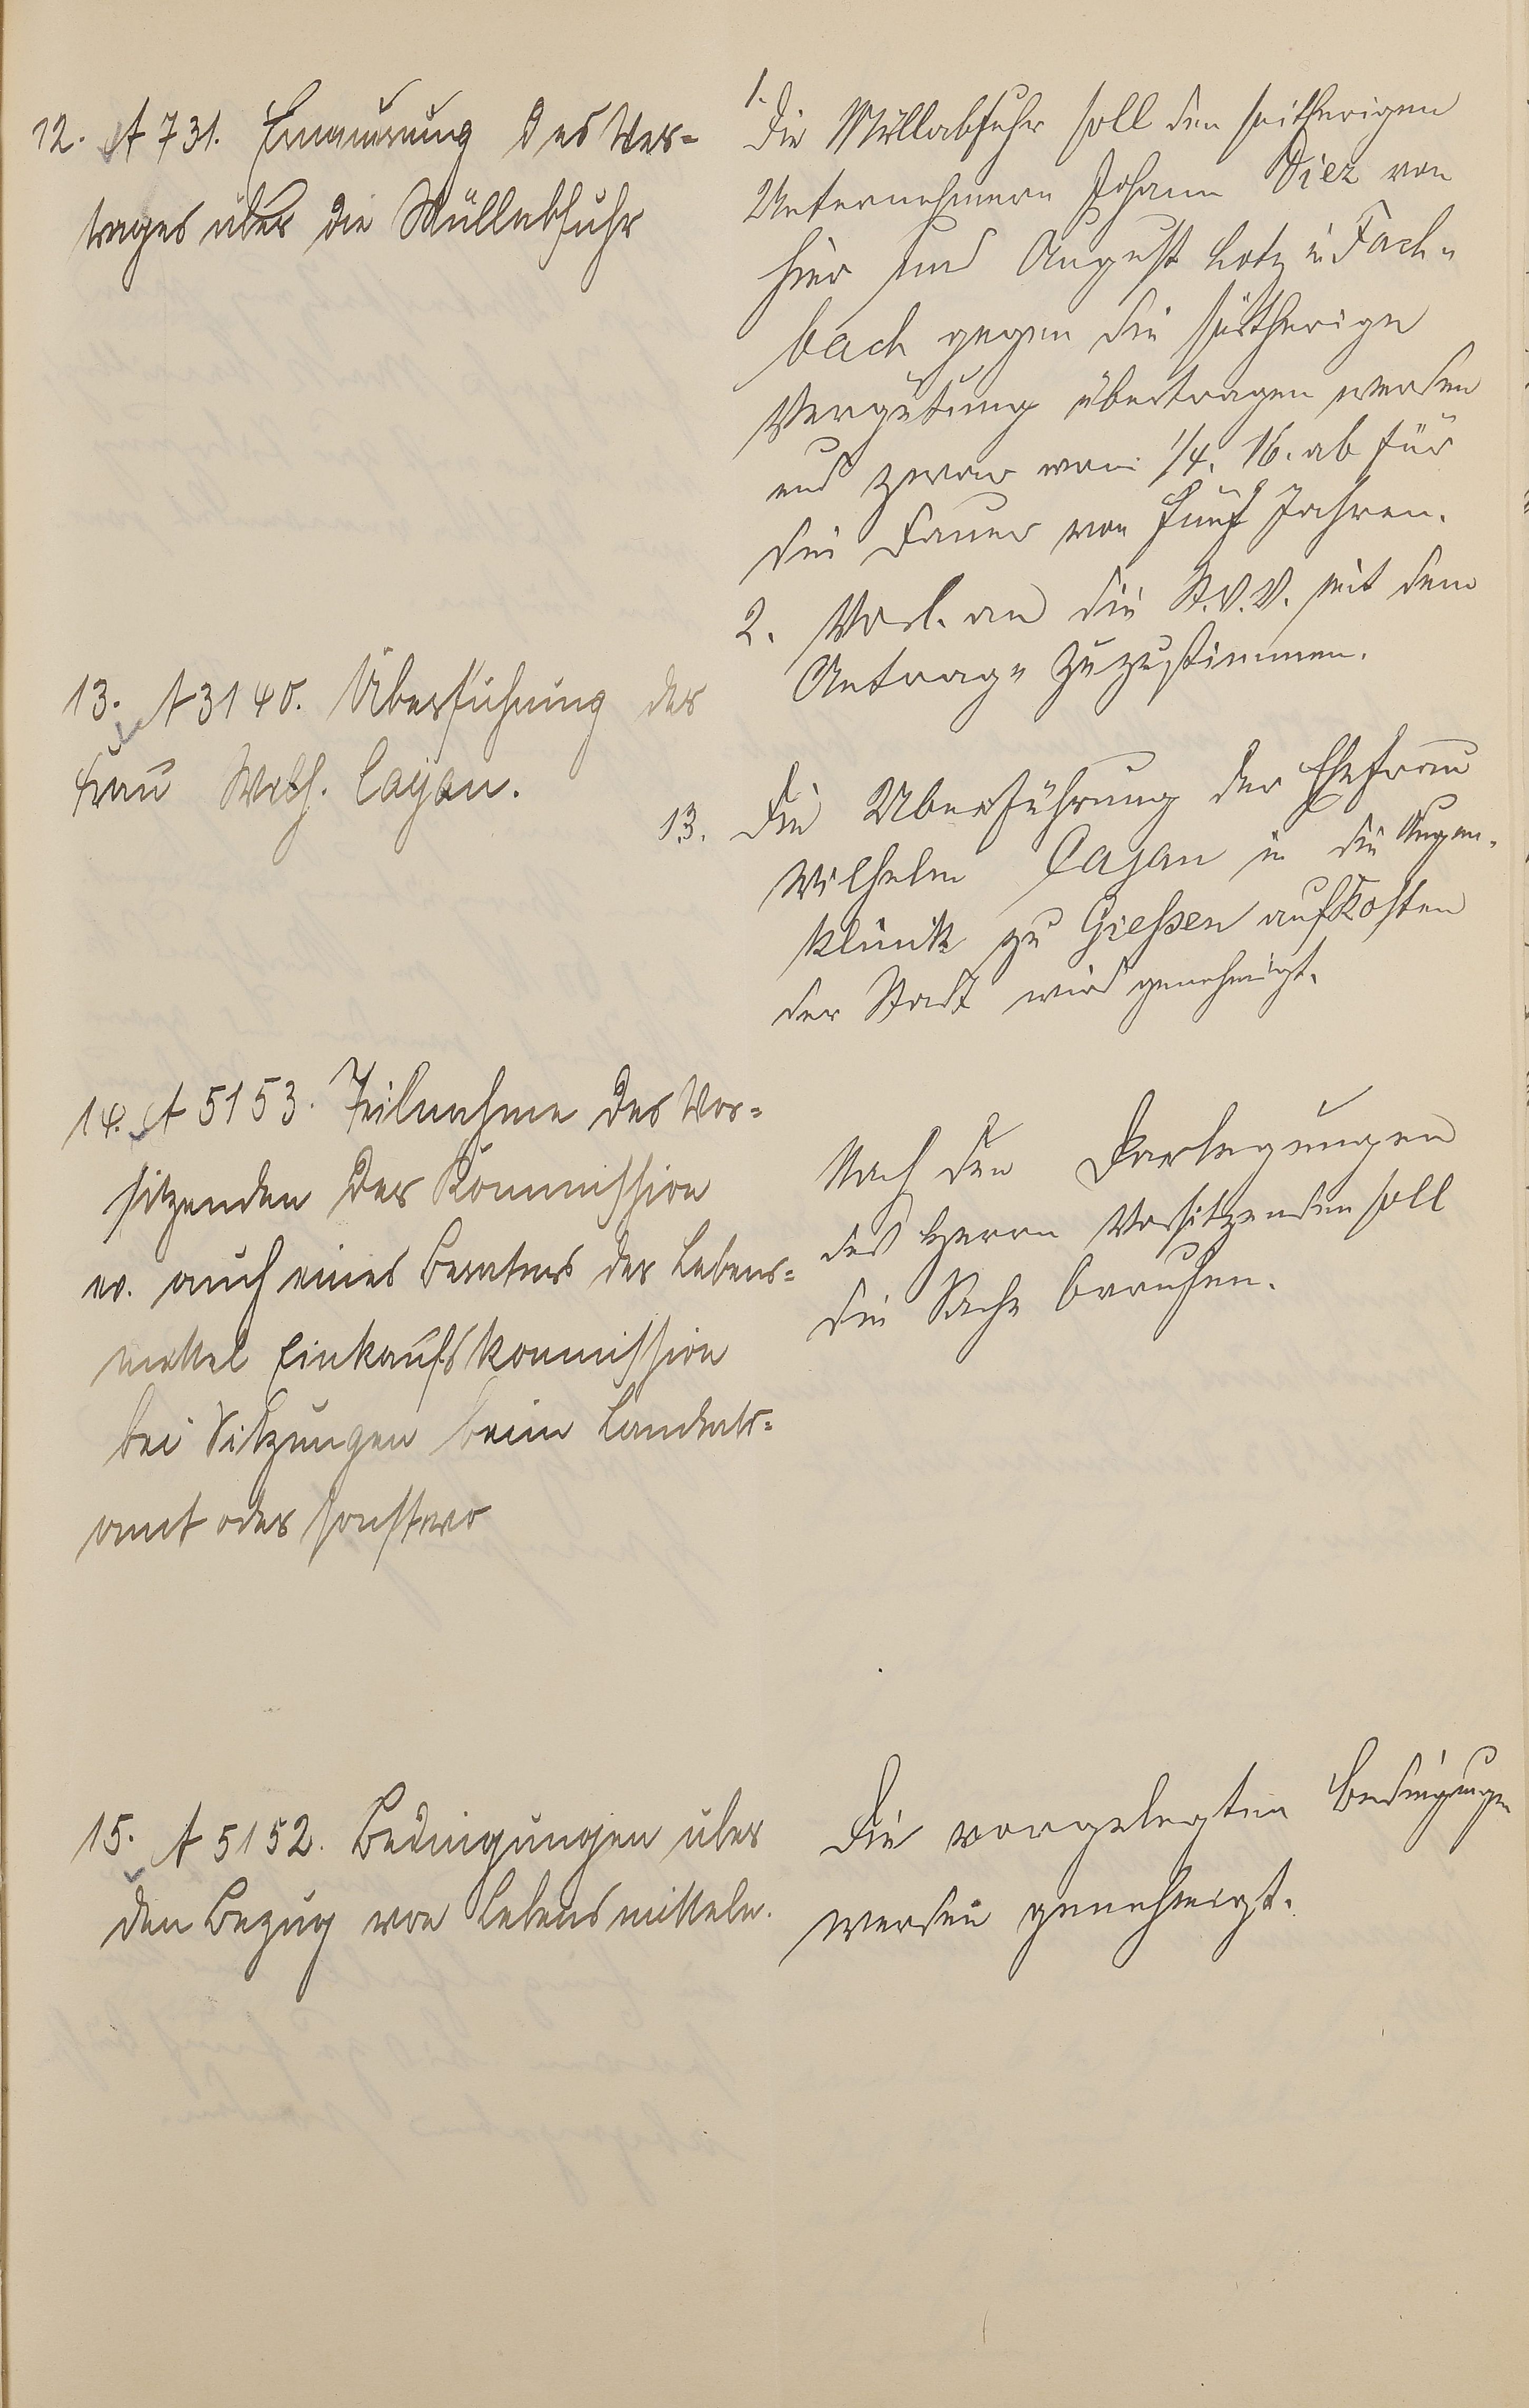 12. A 731. Erneuerung des Ver-
trages über die Müllabfuhr
1.
Die Müllabfuhr soll den seitherigen
Unternehmern Johann Diez von
hier und August Lotz in Fach-
bach gegen die seitherige
Vergütung übertragen werden
und zwar vom 1/4. 16. ab für
die Dauer von fünf Jahren.
2. Vorl. an die St.V.V. mit dem
Antrage zuzustimmen.
13. A 3140. Überführung der
Frau Wilh. Cajan.
13. Die Überführung der Ehefrau
Wilhelm Cajan in die Augen-
klinik zu Giessen auf Kosten
der Stadt wird genehmigt.
14. A 5153. Teilnahme des Vor-
sitzenden der Kommission
ev. auch eines Beraters der Lebens-
mittel Einkaufskommission
bei Sitzungen beim Landrats-
amt oder sonstwo
Nach den Darlegungen
des Herrn Vorsitzenden soll
die Sache beruhen.
15. A 5152. Bedingungen über
den Bezug von Lebensmitteln.
Die vorgelegten Bedingungen
werden genehmigt.